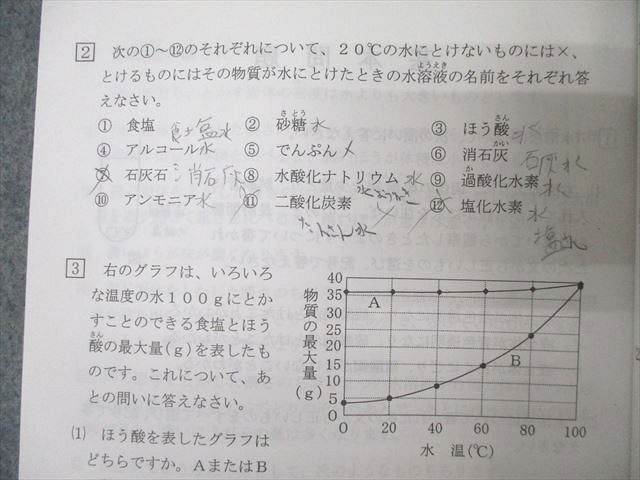 2 次の①~⑫のそれぞれについて、20℃の水にとけないものには×、
とけるものにはその物質が水にとけたときの水溶液の名前をそれぞれ答
えなさい。
① 食塩 食塩水 ② 砂糖水 ③ ほう酸 水
④ アルコール水 ⑤ でんぷん × ⑥ 消石灰 石灰水
⑦ 石灰石 消石灰 ⑧ 水酸化ナトリウム 水 ⑨ 過酸化水素 水
水ようえき
⑩ アンモニア水 ⑪ 二酸化炭素 ⑫ 塩化水素 水
たんさん水 塩さん
3 右のグラフは、いろいろ
な温度の水100gにとか
すことのできる食塩とほう
酸の最大量(g)を表したも
のです。これについて、あ
との問いに答えなさい。
(1) ほう酸を表したグラフは
どちらですか。AまたはB
物質の最大量(g)
40
35
30
25
20
15
10
5
0
A
B
0 20 40 60 80 100
水 温(℃)